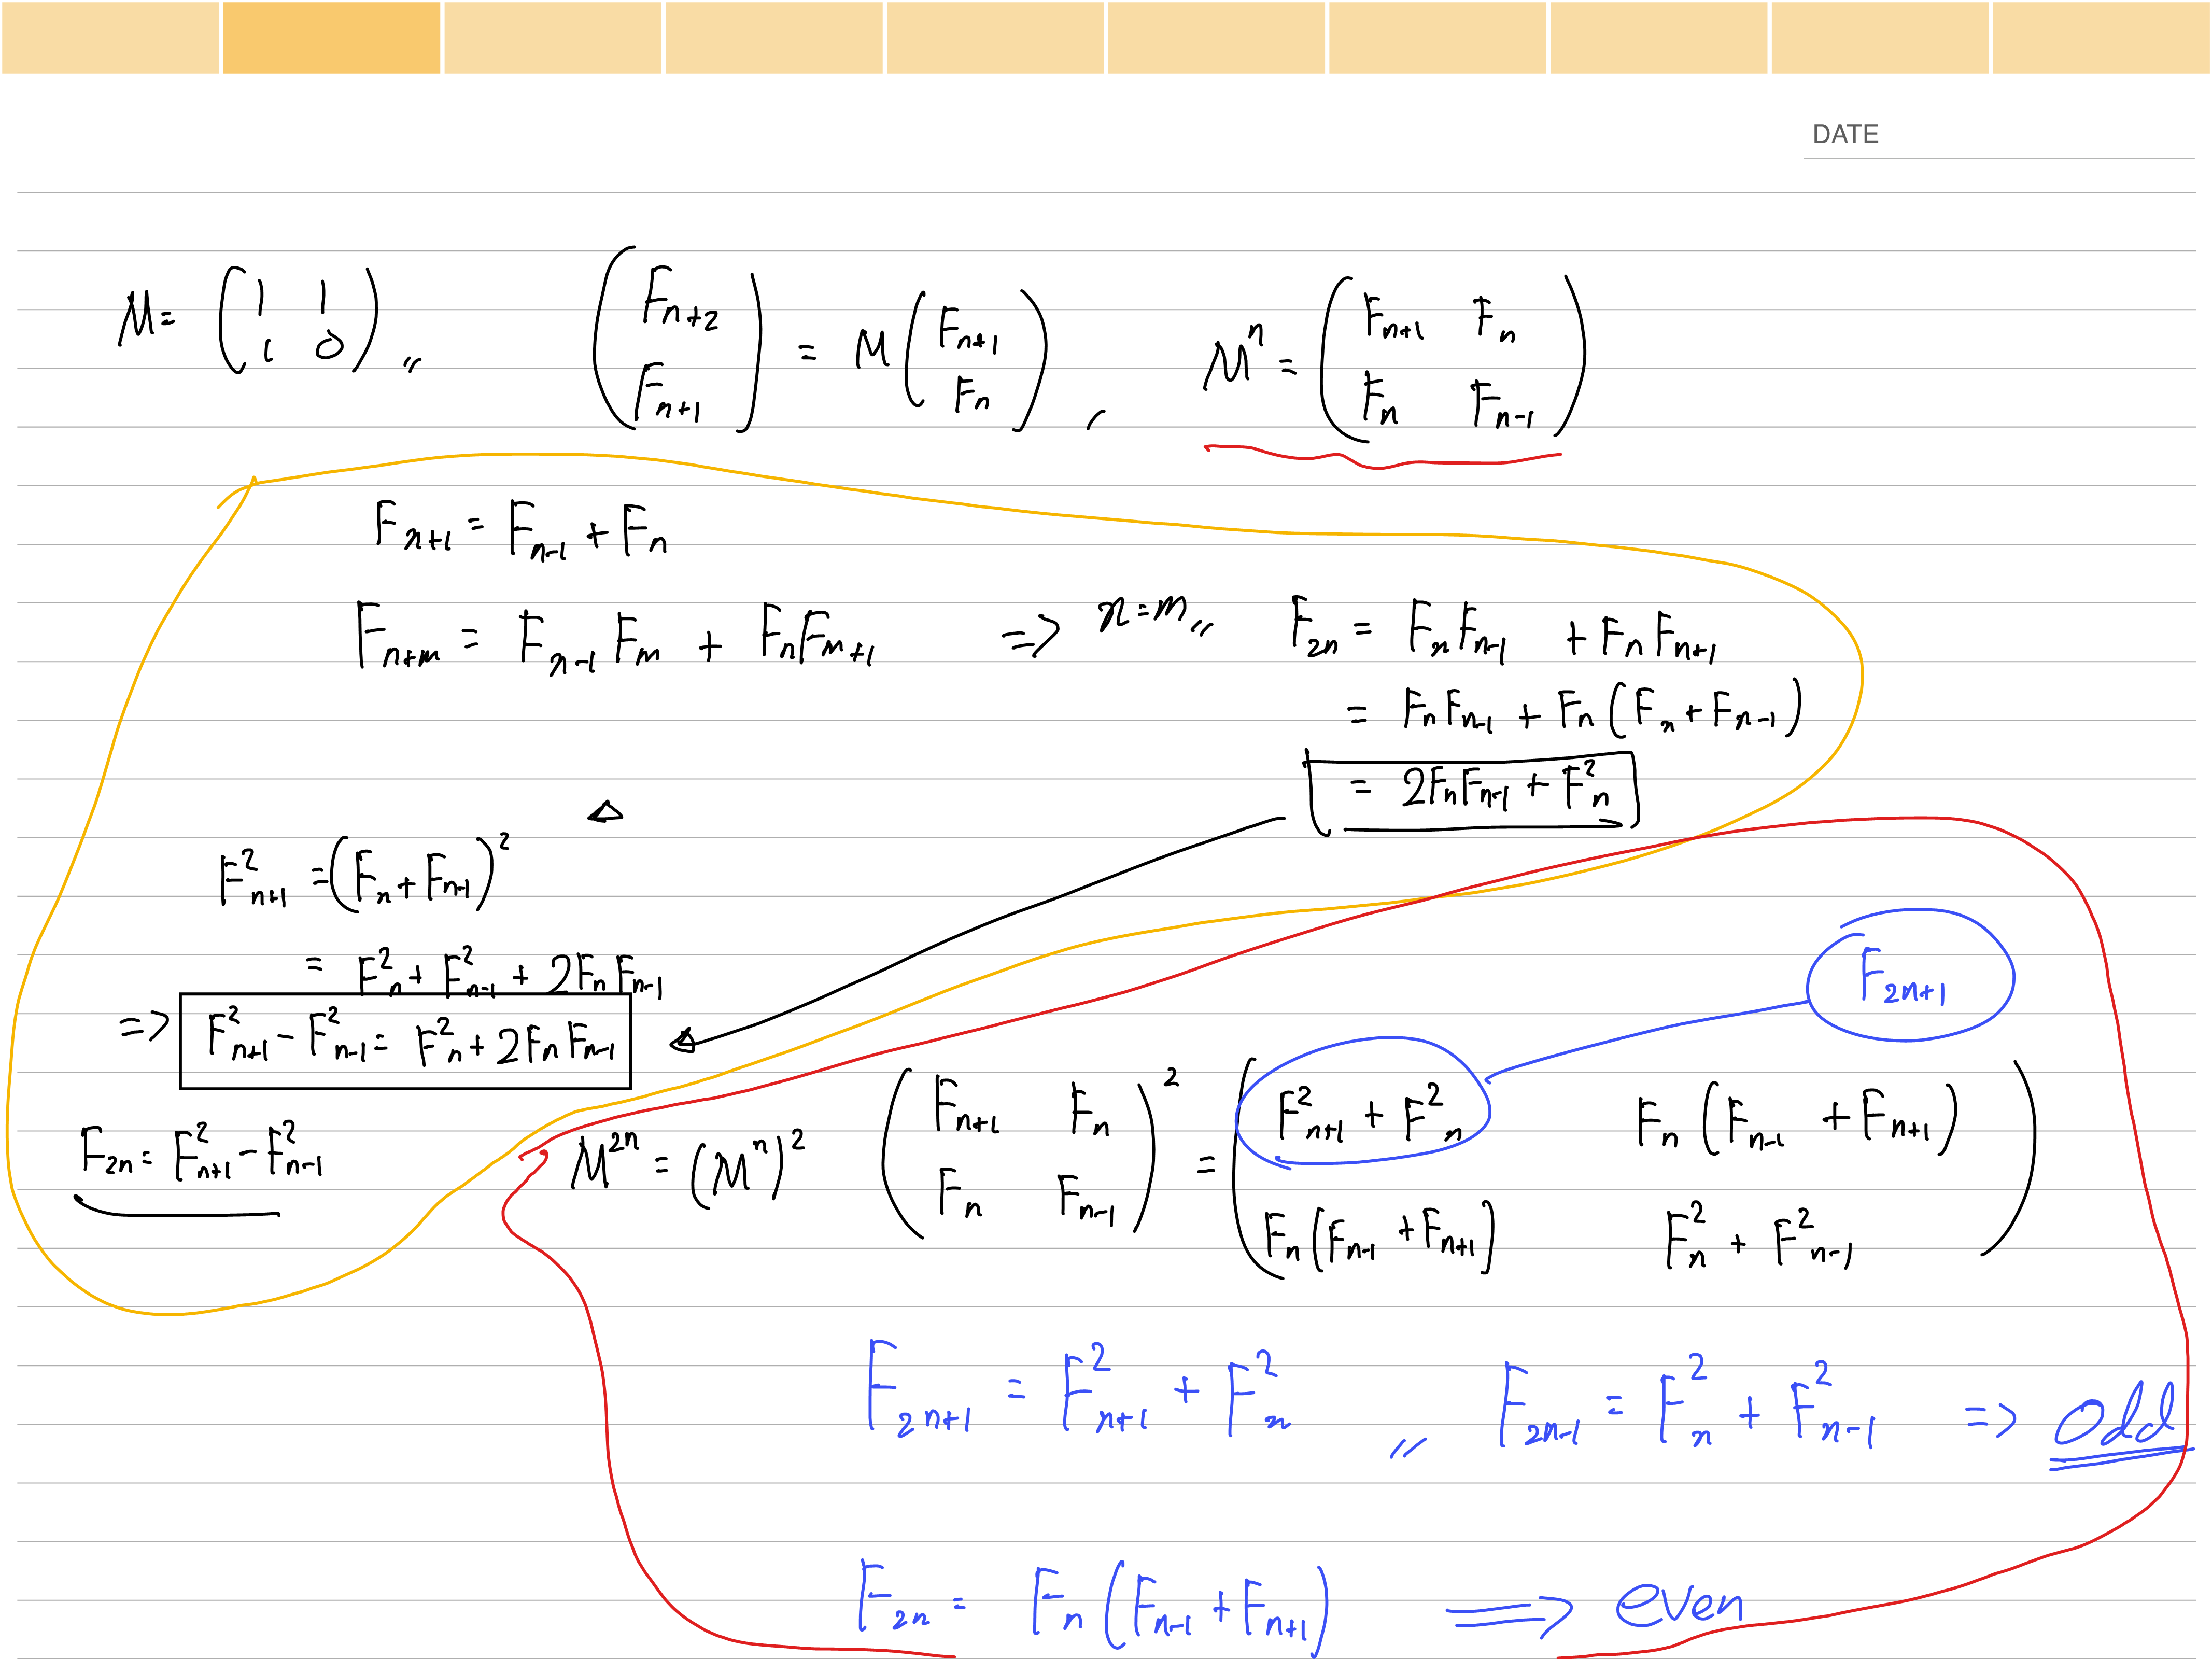 DATE
M = ( 1 1 ; 1 0 ) ,, ( F_{n+2} ; F_{n+1} ) = M ( F_{n+1} ; F_n ) , M^n = ( F_{n+1} F_n ; F_n F_{n-1} )
F_{n+1} = F_{n-1} + F_n
F_{n+m} = F_{n-1} F_m + F_n F_{m+1} => n=m ,, F_{2n} = F_n F_{n-1} + F_n F_{n+1}
= F_n F_{n-1} + F_n ( F_n + F_{n-1} )
= 2F_n F_{n-1} + F_n^2
F_{n+1}^2 = ( F_n + F_{n-1} )^2
= F_n^2 + F_{n-1}^2 + 2F_n F_{n-1}
=> F_{n+1}^2 - F_{n-1}^2 = F_n^2 + 2F_n F_{n-1}
F_{2n} = F_{n+1}^2 - F_{n-1}^2
F_{2n+1}
M^{2n} = (M^n)^2 ( F_{n+1} F_n ; F_n F_{n-1} )^2 = ( F_{n+1}^2 + F_n^2 F_n ( F_{n-1} + F_{n+1} ) ; F_n ( F_{n-1} + F_{n+1} ) F_n^2 + F_{n-1}^2 )
F_{2n+1} = F_{n+1}^2 + F_n^2 ,, F_{2n-1} = F_n^2 + F_{n-1}^2 => Odd
F_{2n} = F_n ( F_{n-1} + F_{n+1} ) => even